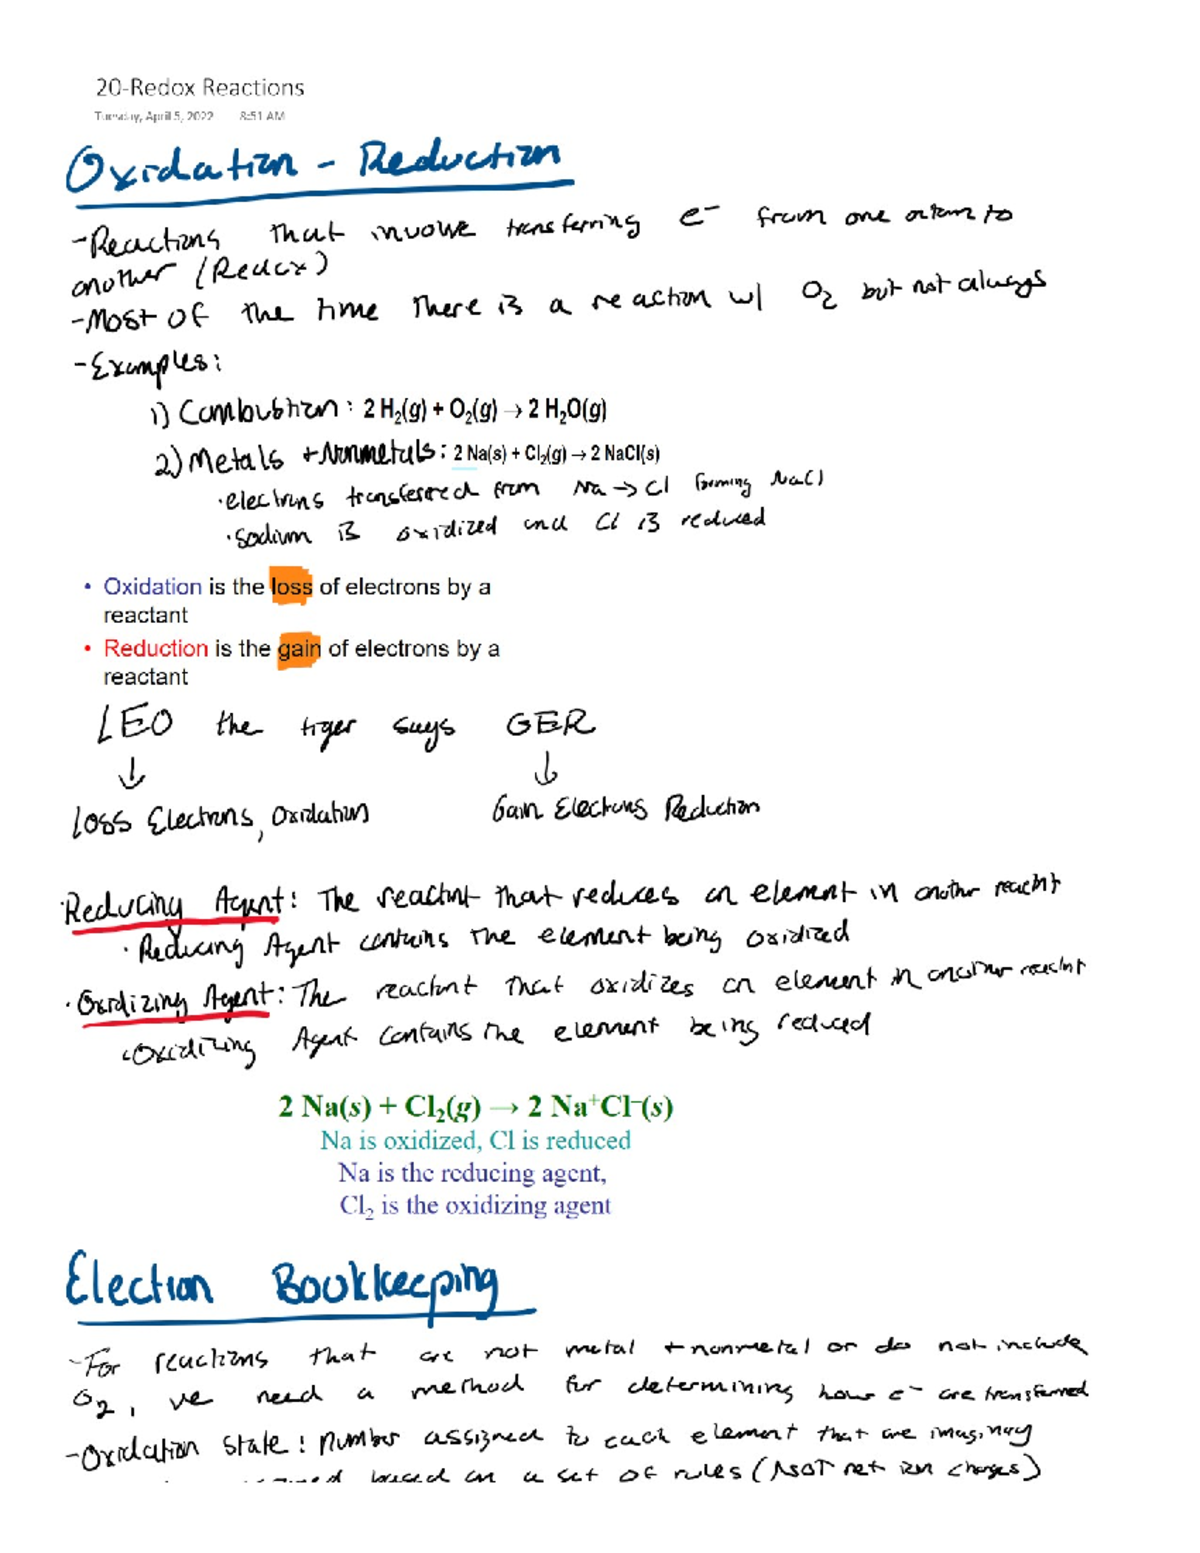 20-Redox Reactions
Tuesday, April 5, 2022 8:51 AM
Oxidation - Reduction
-Reactions that involve transferring e⁻ from one atom to
another (Redox)
-Most of the time there is a reaction w/ O₂ but not always
-Examples:
1) Combustion: 2 H₂(g) + O₂(g) → 2 H₂O(g)
2) Metals + Nonmetals: 2 Na(s) + Cl₂(g) → 2 NaCl(s)
·electrons transferred from Na → Cl forming NaCl
·sodium is oxidized and Cl is reduced
• Oxidation is the loss of electrons by a
reactant
• Reduction is the gain of electrons by a
reactant
LEO the tiger says GER
↓ ↓
Loss Electrons, Oxidation Gain Electrons Reduction
·Reducing Agent: The reactant that reduces an element in another reactnt
·Reducing Agent contains the element being oxidized
·Oxidizing Agent: The reactant that oxidizes an element in another reactnt
·Oxidizing Agent contains the element being reduced
2 Na(s) + Cl₂(g) → 2 Na⁺Cl⁻(s)
Na is oxidized, Cl is reduced
Na is the reducing agent,
Cl₂ is the oxidizing agent
Electron Bookkeeping
-For reactions that are not metal + nonmetal or do not include
O₂, we need a method for determining how e⁻ are transferred
-Oxidation state: number assigned to each element that are imaginary
based on a set of rules (NOT net ion charges)